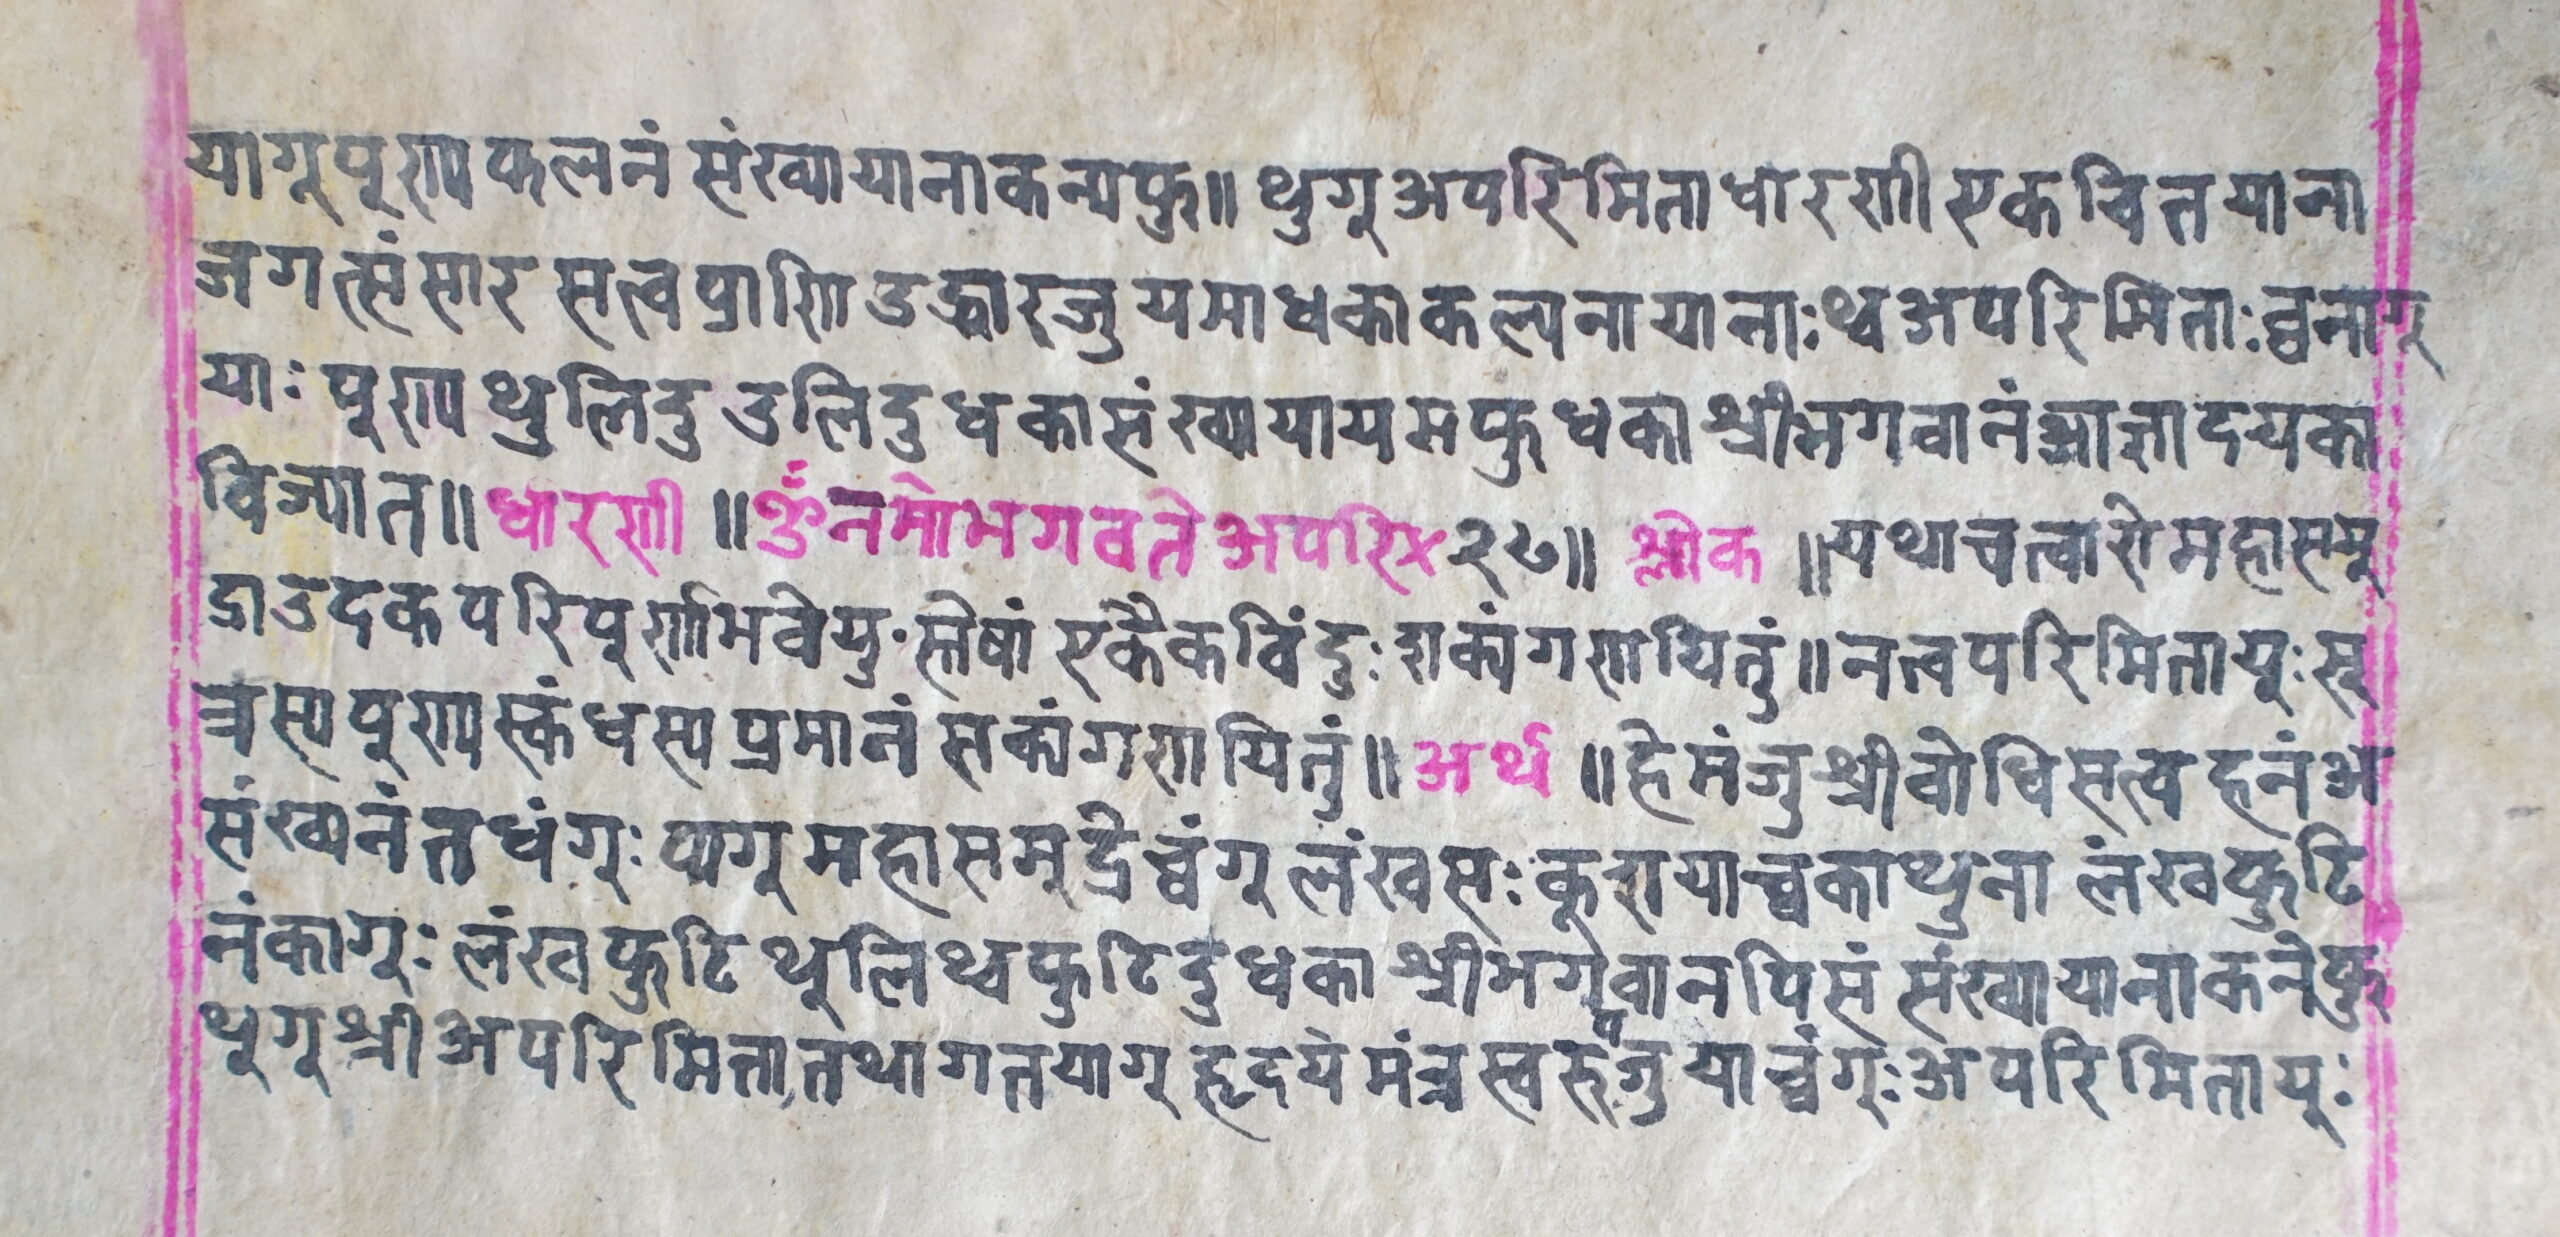 यागू पूण्य फलनं संख्यायाना कन्यफु॥ थुगू अपरिमिता धारणी एकचित्तयाना
जगत्संसार सत्वप्राणि उद्धारजुयमाधका कल्पनायानाः थ्व अपरिमिताः ब्वनागू
याः पूण्य थुलिदु उलिदु धका संख्या यायमफु धका श्रीभगवानं आज्ञादयका
विज्यात॥ धारणी ॥ ॐ नमो भगवते अपरि× २७॥ श्लोक ॥ यथा चत्वारो महासमू
द्रा उदकपरिपूर्णा भवेयु॰ स्तेषां एकैकविंदुः शक्यं गणयितुं॥ नत्वपरिमितायूः सू
त्रस्य पूण्यस्कंधस्य प्रमानं सक्यं गणयितुं॥ अर्थ ॥ हे मंजुश्रीवोधिसत्व हनं अ
संख्यनं तधंगूः प्यगू महासमूद्रे च्वंगु लंखसः कूशयाच्वका थुना लंखफुटि
नंकागूः लंखफुटि थूलि थ्व फुटिदु धका श्रीभगवानपिसं संख्यायाना कनेफु
थूगू श्रीअपरिमितातथागतयागू हृदये मंत्रस्वरूपजुयाच्वंगूः अपरिमितायूः